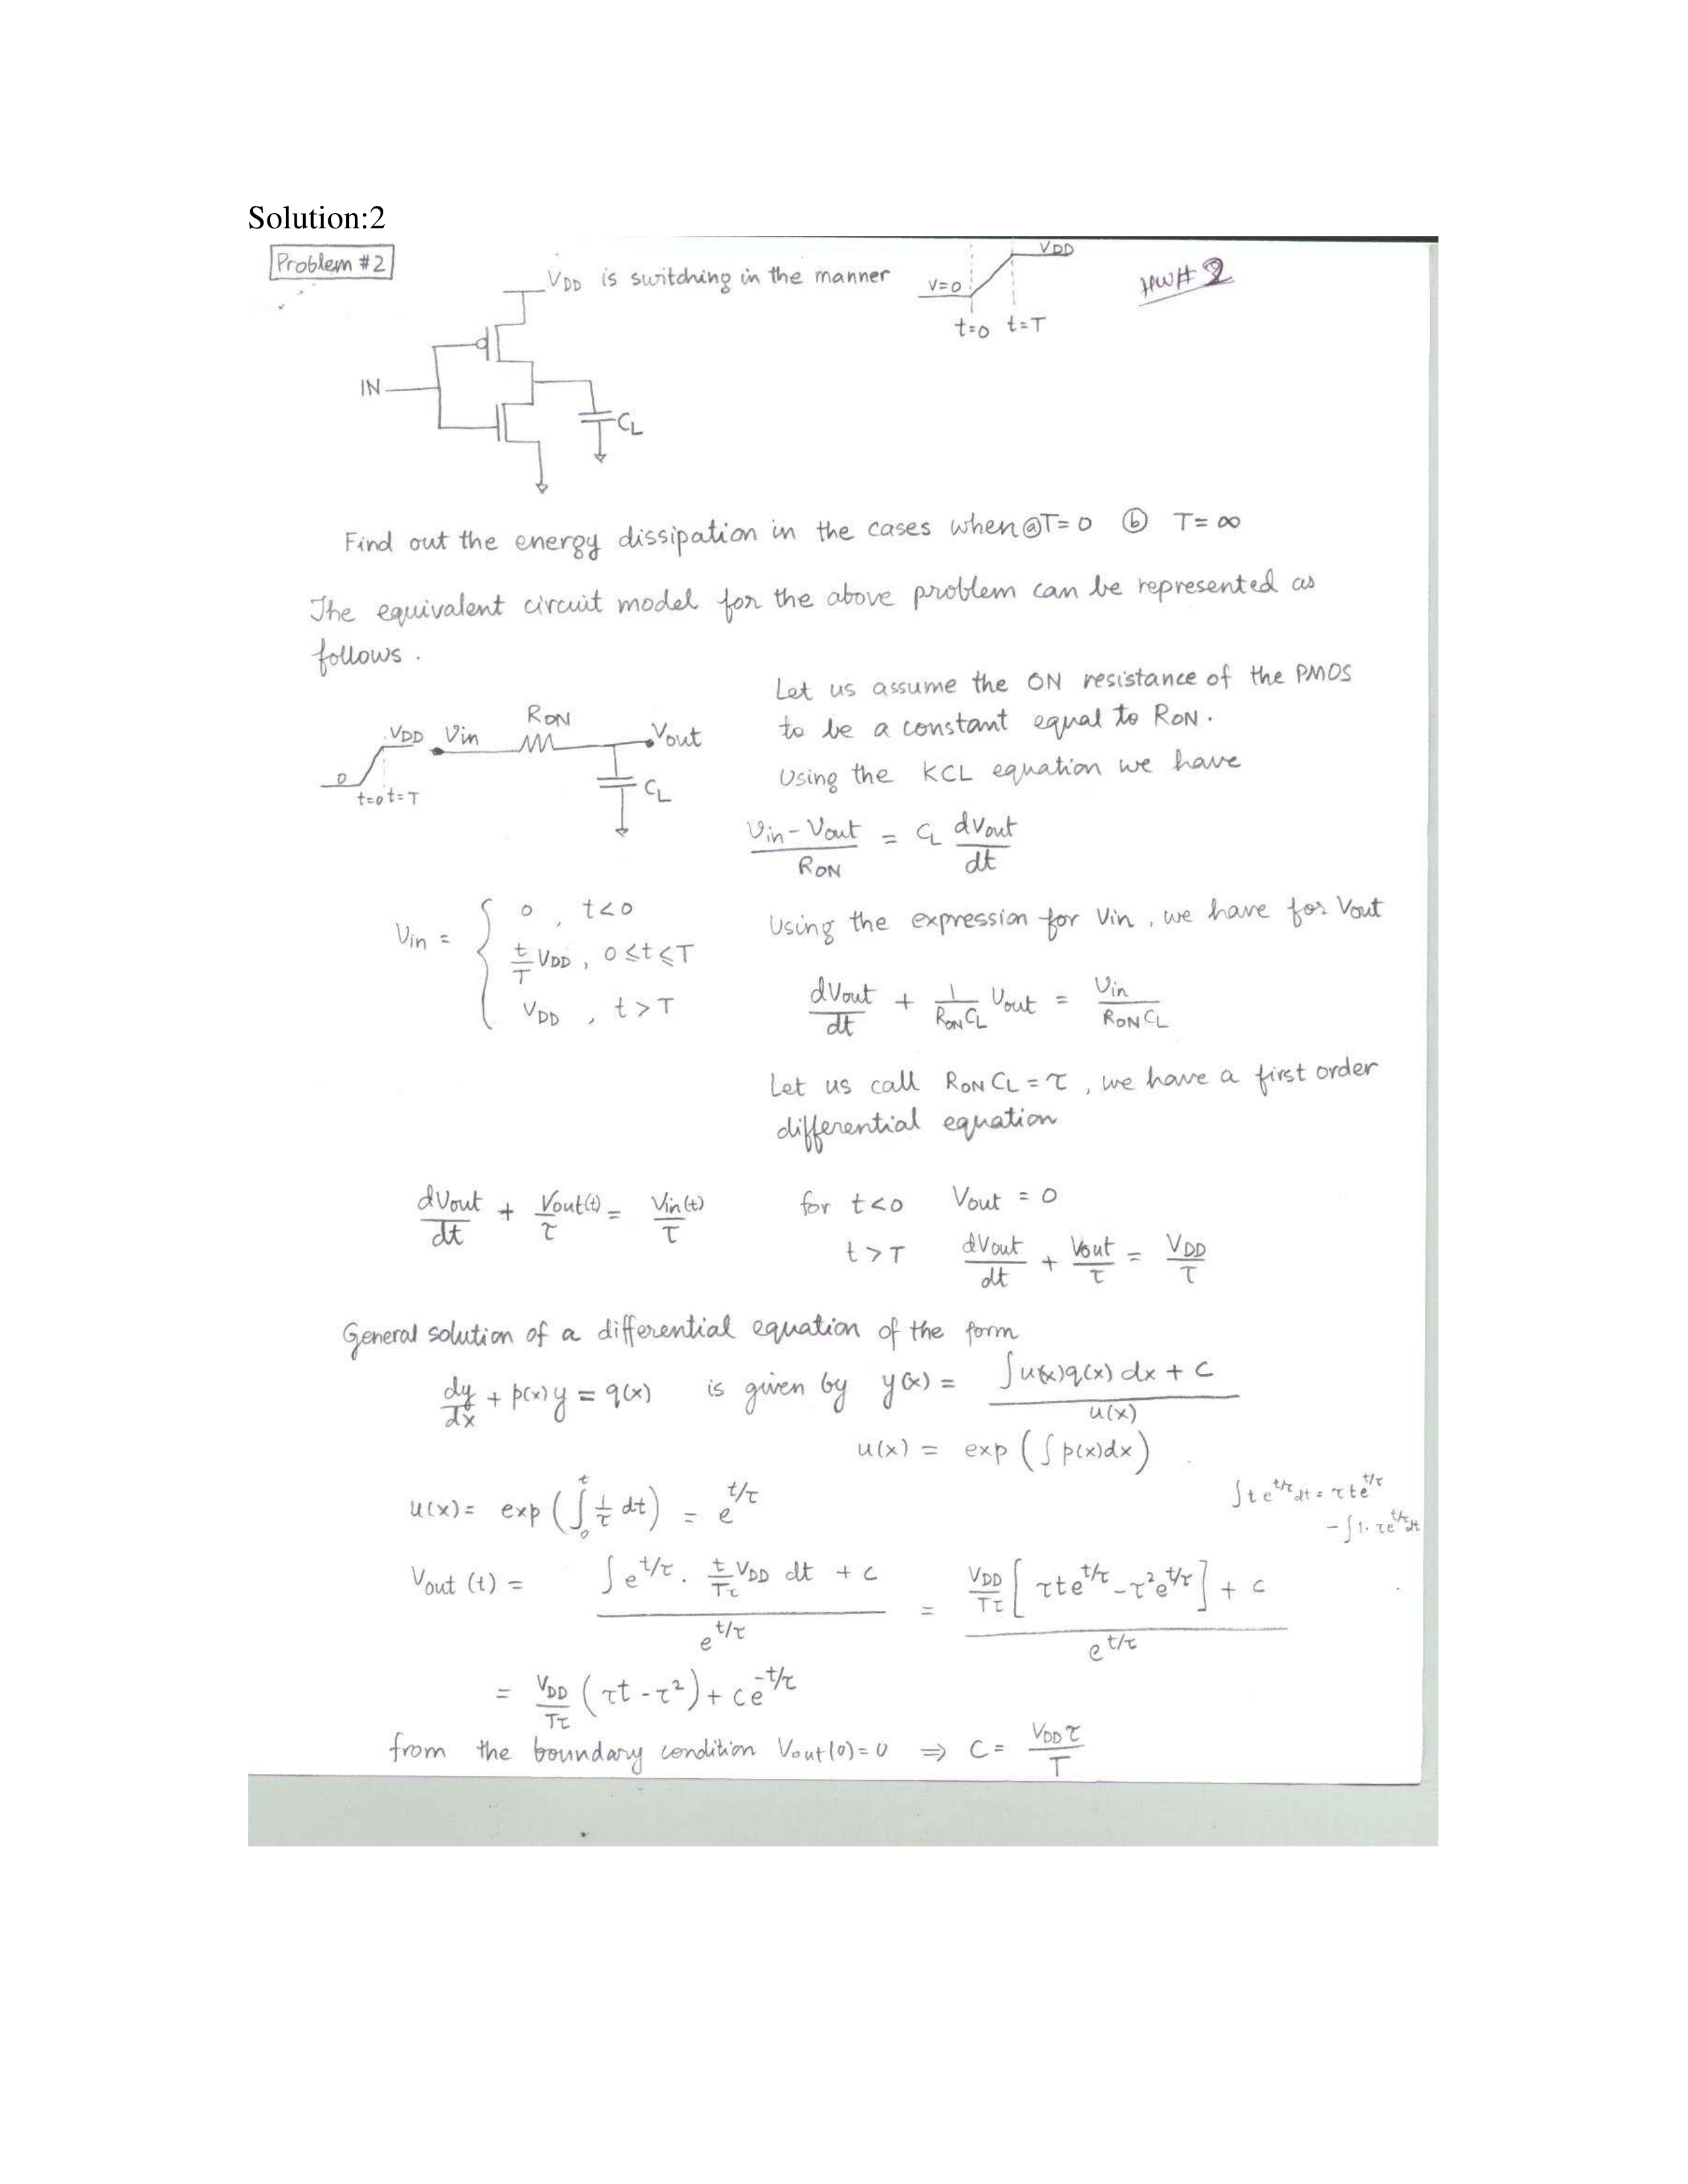 Solution:2
Problem #2
VDD is switching in the manner
V=0
VDD
t=0 t=T
HW# 2
IN
CL
Find out the energy dissipation in the cases when ⓐ T=0 ⓑ T=∞
The equivalent circuit model for the above problem can be represented as
follows.
Let us assume the ON resistance of the PMOS
to be a constant equal to RON.
Using the KCL equation we have
0
t=0 t=T
VDD Vin
RON
Vout
CL
(Vin - Vout)/RON = CL dVout/dt
Vin = { 0 , t<0
t/T VDD , 0≤t≤T
VDD , t>T
Using the expression for Vin, we have for Vout
dVout/dt + 1/(RON CL) Vout = Vin/(RON CL)
Let us call RON CL = τ , we have a first order
differential equation
dVout/dt + Vout(t)/τ = Vin(t)/τ
for t<0 Vout = 0
t>T dVout/dt + Vout/τ = VDD/τ
General solution of a differential equation of the form
dy/dx + p(x)y = q(x) is given by y(x) = (∫u(x)q(x) dx + c)/u(x)
u(x) = exp (∫p(x)dx)
u(x) = exp (∫₀ᵗ 1/τ dt) = e^(t/τ)
∫t e^(t/τ) dt = τ t e^(t/τ)
- ∫1. τe^(t/τ) dt
Vout (t) = (∫e^(t/τ) . t/(Tτ) VDD dt + c)/e^(t/τ) = (VDD/(Tτ) [τte^(t/τ) - τ²e^(t/τ)] + c)/e^(t/τ)
= VDD/(Tτ) (τt - τ²) + ce^(-t/τ)
from the boundary condition Vout(0)=0 ⇒ C = VDDτ/T